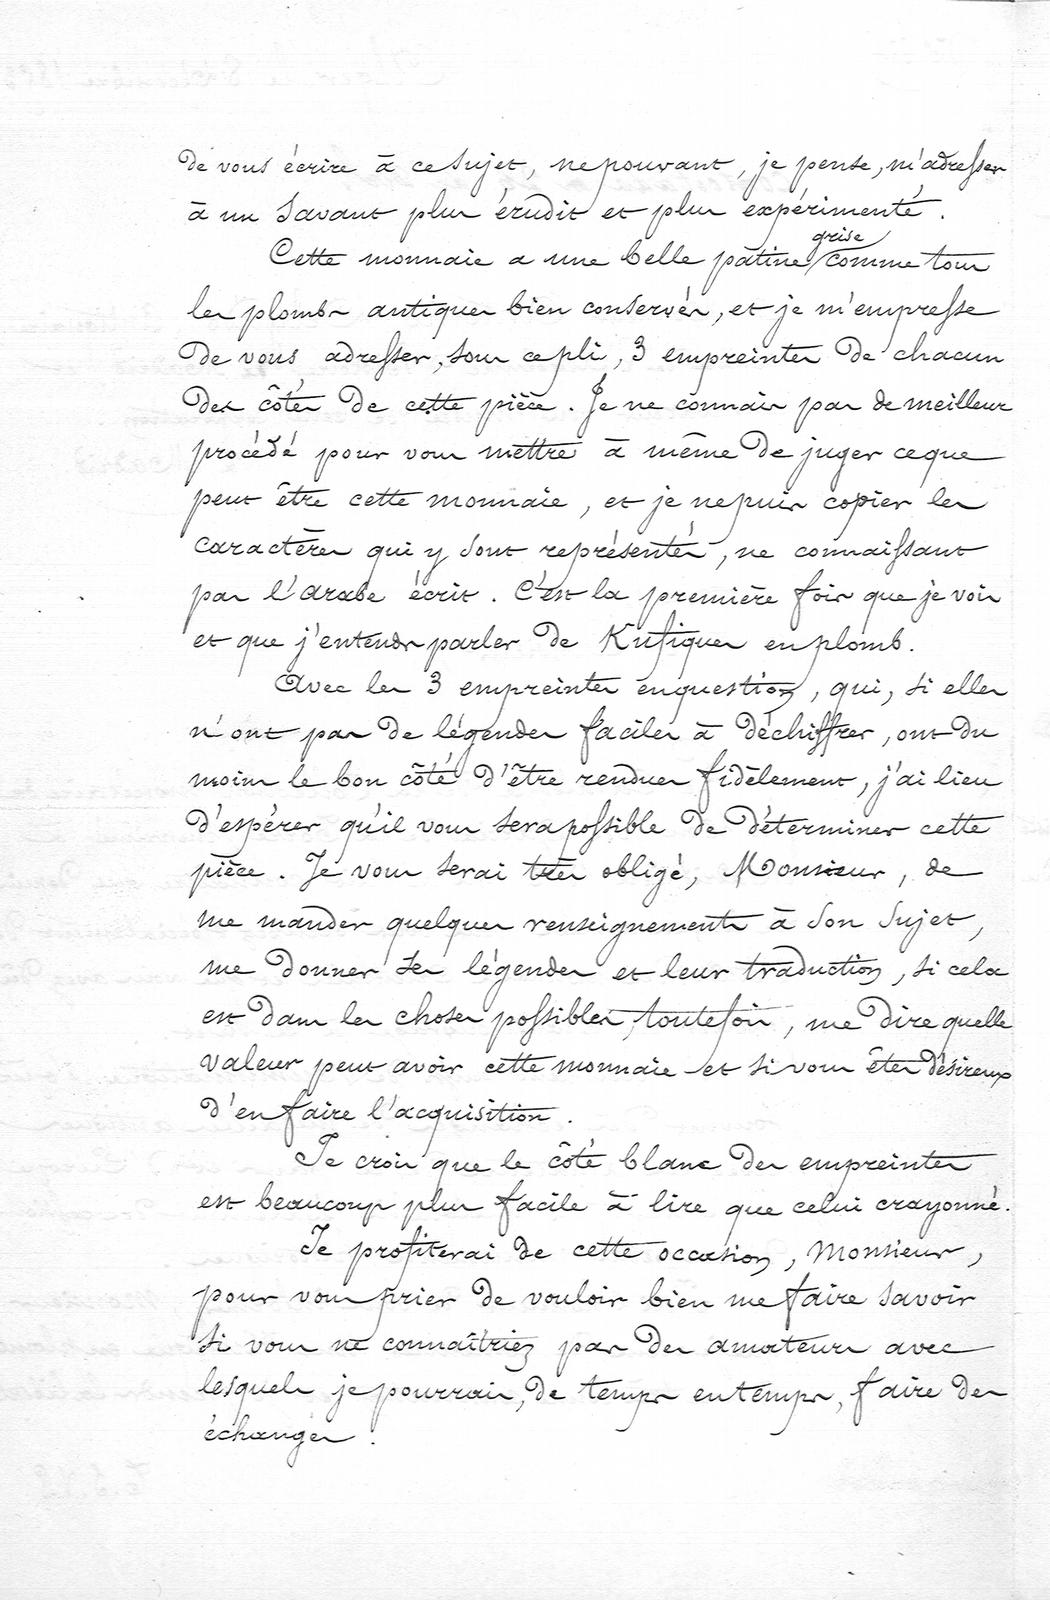 de vous écrire à ce sujet, ne pouvant, je pense, m'adresser
à un savant plus érudit et plus expérimenté.
Cette monnaie a une belle patine grise comme tous
les plombs antiques bien conservés, et je m'empresse
de vous adresser, sous ce pli, 3 empreintes de chacun
des côtés de cette pièce. Je ne connais pas de meilleur
procédé pour vous mettre à même de juger ce que
peut être cette monnaie, et je ne puis copier les
caractères qui y sont représentés, ne connaissant
pas l'arabe écrit. C'est la première fois que je vois
et que j'entends parler de Kufiques en plomb.
Avec les 3 empreintes en question, qui, si elles
n'ont pas de légendes faciles à déchiffrer, ont du
moins le bon côté d'être rendues fidèlement, j'ai lieu
d'espérer qu'il vous sera possible de déterminer cette
pièce. Je vous serai très obligé, Monsieur, de
me mander quelques renseignements à son sujet,
me donner ses légendes et leur traduction, si cela
est dans les choses possibles, toutefois, me dire quelle
valeur peut avoir cette monnaie et si vous êtes désireux
d'en faire l'acquisition.
Je crois que le côté blanc des empreintes
est beaucoup plus facile à lire que celui crayonné.
Je profiterai de cette occasion, Monsieur,
pour vous prier de vouloir bien me faire savoir
si vous ne connaîtriez pas des amateurs avec
lesquels je pourrais, de temps en temps, faire des
échanges.